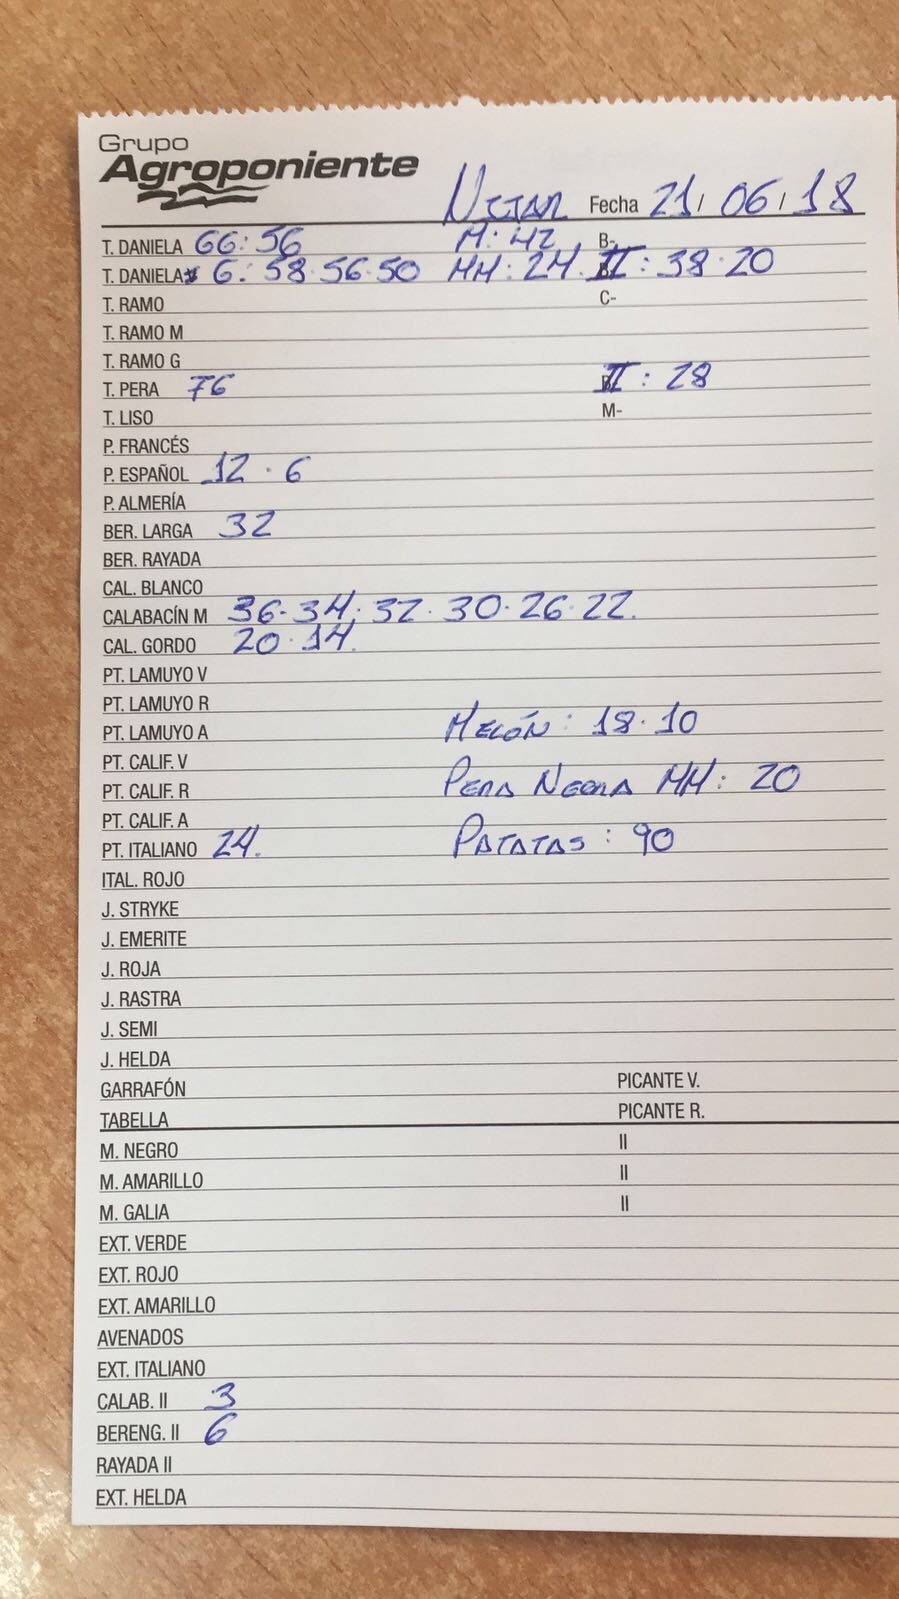 Grupo
Agroponiente
NIJAR Fecha 21/ 06 / 18
T. DANELA 66: 56 M: 42 B-
T. DANIELA 6: 58. 56. 50 MM: 24. II: 38. 20
T. RAMO C-
T. RAMO M
T. RAMO G
T. PERA 76 II: 28
T. LISO M-
P. FRANCÉS
P. ESPAÑOL 12. 6
P. ALMERÍA
BER. LARGA 32
BER. RAYADA
CAL. BLANCO
CALABACÍN M 36. 34. 32. 30. 26. 22.
CAL. GORDO 20. 14.
PT. LAMUYO V
PT. LAMUYO R
PT. LAMUYO A MELÓN: 18. 10
PT. CALIF. V
PT. CALIF. R PERA NEGRA MM: 20
PT. CALIF. A
PT. ITALIANO 24. PATATAS: 90
ITAL. ROJO
J. STRYKE
J. EMERITE
J. ROJA
J. RASTRA
J. SEMI
J. HELDA
GARRAFÓN PICANTE V.
TABELLA PICANTE R.
M. NEGRO II
M. AMARILLO II
M. GALIA II
EXT. VERDE
EXT. ROJO
EXT. AMARILLO
AVENADOS
EXT. ITALIANO
CALAB. II 3
BERENG. II 6
RAYADA II
EXT. HELDA